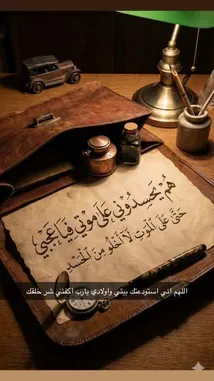 هُمْ يَحْسِدُونِي عَلَى مَوْتِي فَيَا عَجَبِي
حَتَّى عَلَى الْمَوْتِ لَا أَخْلُو مِنَ الْحَسَدِ
اللهم اني استودعتك بيتي واولادي يارب اكفني شر خلقك